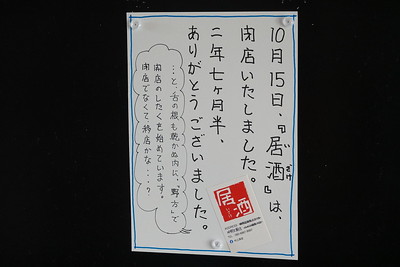 10月15日、『居酒』は、
ざけ
閉店いたしました。
二年七ヶ月半、
ありがとうございました。
…と、舌の根も乾かぬ内に、“野方”で
開店のしたくを始めています。
閉店でなくて移店かな…？
居酒